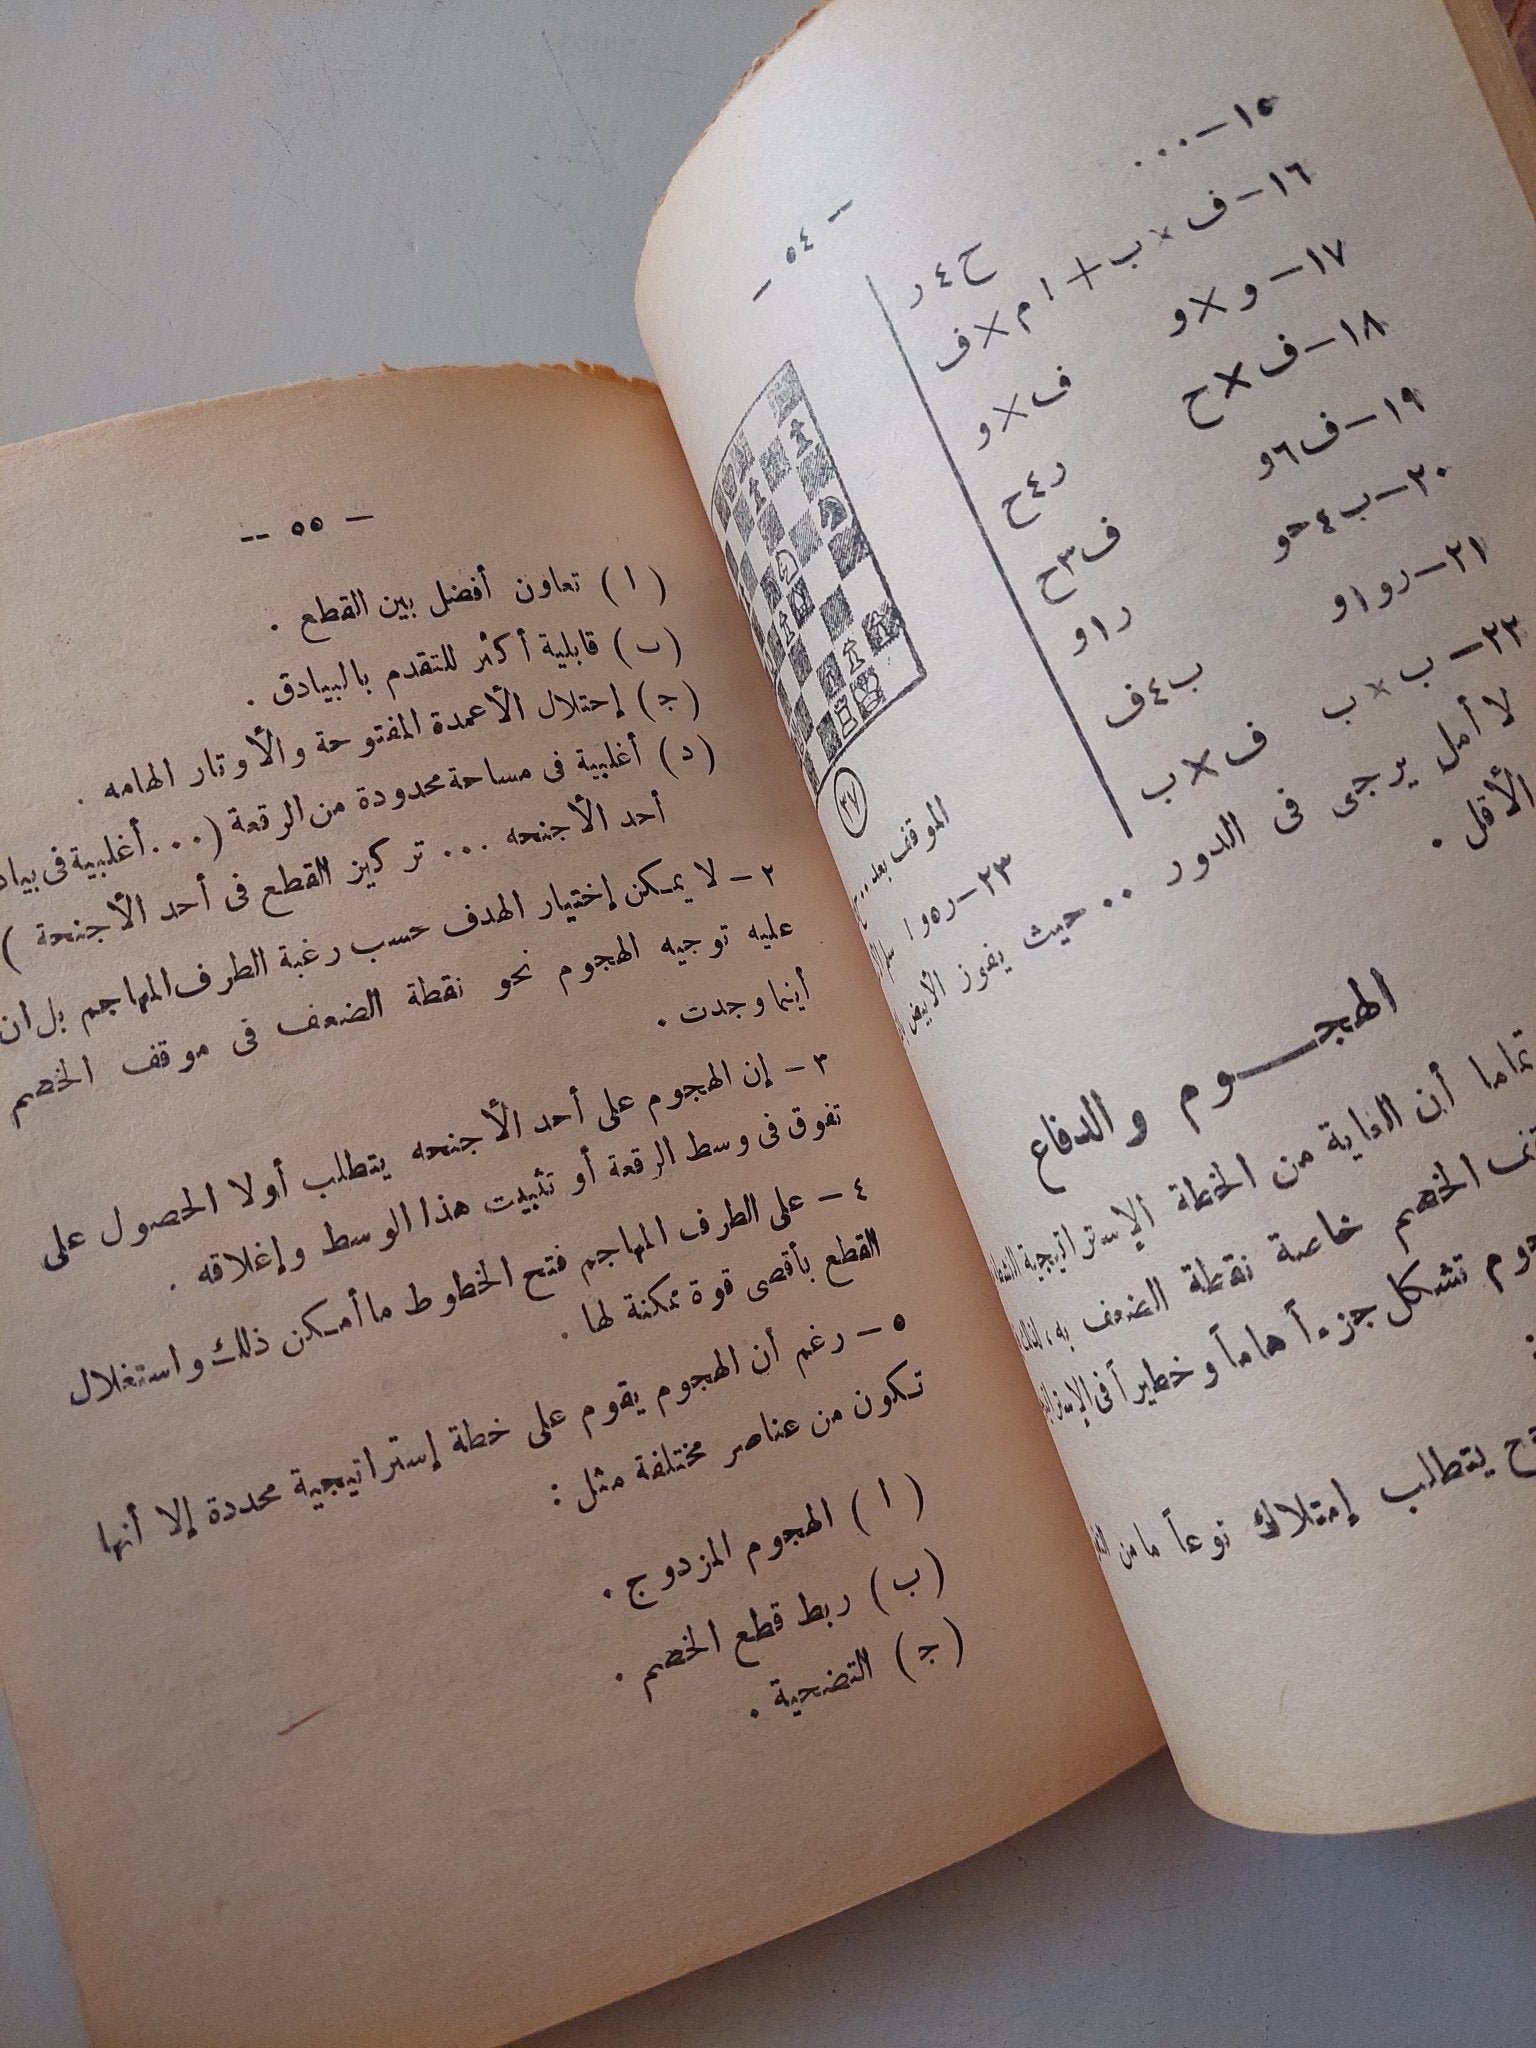 — ٥٤ —
١٥— ... ح٤ر
١٦— ف × ب + ١ م × ف
١٧— و × و ف × و
١٨— ف × ح ر٤ح
١٩— ف٦و ف٣ح
٢٠— ب٤حو ر١و
٢١— رو١و ب٤ف
٢٢— ب × ب ف × ب
٣٧
الموقف بعد ...
٢٣— ر٥و١
لا أمل يرجى فى الدور .. حيث يفوز الأبيض
الأقل .
الهجــوم والدفاع
تماما أن الغاية من الخطة الإستراتيجية
الخصم خاصة نقطة الضعف به ،
تشكل جزءاً هاماً وخطيراً فى
يتطلب إمتلاك نوعاً ما من
— ٥٥ —
( ا ) تعاون أفضل بين القطع .
( ب ) قابلية أكثر للتقدم بالبيادق .
( ج ) إحتلال الأعمدة المفتوحة والأوتار الهامه .
( د ) أغلبية فى مساحة محدودة من الرقعة ( ... أغلبية فى
أحد الأجنحه ... تركيز القطع فى أحد الأجنحة )
٢ — لا يمكن إختيار الهدف حسب رغبة الطرف المهاجم بل ان
عليه توجيه الهجوم نحو نقطة الضعف فى موقف الخصم
أينما وجدت .
٣ — إن الهجوم على أحد الأجنحه يتطلب أولا الحصول على
تفوق فى وسط الرقعة أو تثبيت هذا الوسط وإغلاقه .
٤ — على الطرف المهاجم فتح الخطوط ما أمكن ذلك واستغلال
القطع بأقصى قوة ممكنة لها .
٥ — رغم أن الهجوم يقوم على خطة إستراتيجية محددة إلا أنها
تكون من عناصر مختلفة مثل :
( ا ) الهجوم المزدوج .
( ب ) ربط قطع الخصم .
( ج ) التضحية .